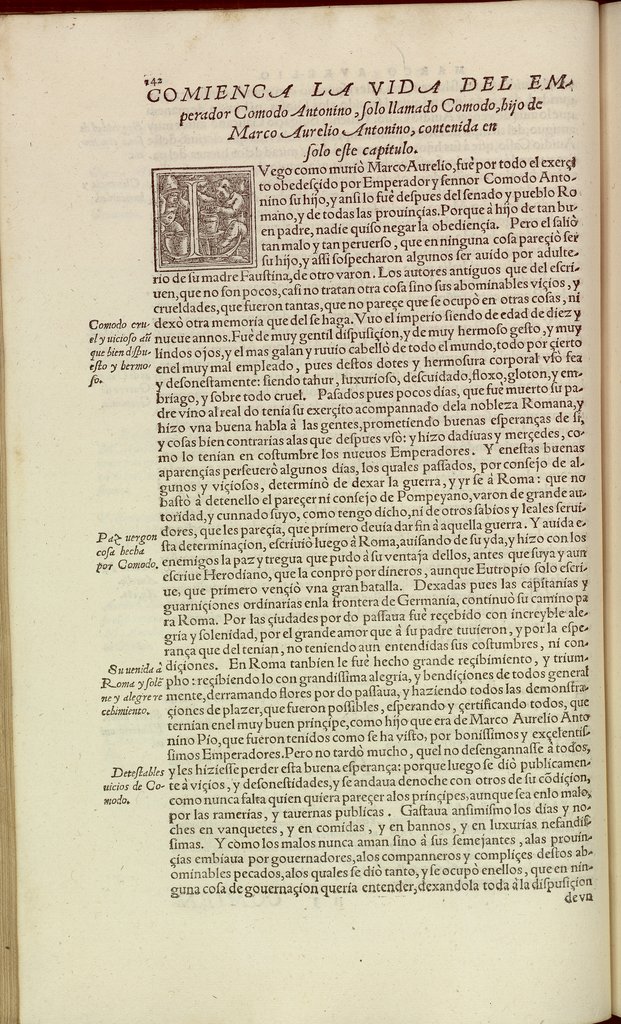 142
COMIENCA LA VIDA DEL EM-
perador Comodo Antonino, ſolo llamado Comodo, hijo de
Marco Aurelio Antonino, contenida en
ſolo eſte capitulo.
LVego como murió Marco Aurelio, fué por todo el exerçi
to obedesçido por Emperador y ſennor Comodo Anto-
nino ſu hijo, y anſi lo fué deſpues del ſenado y pueblo Ro
mano, y de todas las prouinçias. Porque à hijo de tan bu-
en padre, nadie quiſo negar la obediençia. Pero el ſalió
tan malo y tan peruerſo, que en ninguna coſa pareçió ſer
ſu hijo, y aſſi ſoſpecharon algunos ſer auido por adulte-
rio de ſu madre Fauſtina, de otro varon. Los autores antiguos que del eſcri-
uen, que no ſon pocos, caſi no tratan otra coſa ſino ſus abominables viçios, y
crueldades, que fueron tantas, que no pareçe que ſe ocupó en otras coſas, ni
dexó otra memoria que del ſe haga. Vuo el imperio ſiendo de edad de diez y
nueue annos. Fué de muy gentil diſpuſiçion, y de muy hermoſo geſto, y muy
lindos ojos, y el mas galan y ruuio cabello de todo el mundo, todo por çierto
en el muy mal empleado, pues deſtos dotes y hermoſura corporal vſó fea
y deſoneſtamente: ſiendo tahur, luxurioſo, deſcuidado, floxo, gloton, y em-
briago, y ſobre todo cruel. Paſados pues pocos dias, que fué muerto ſu pa-
dre vino al real do tenia ſu exerçito acompannado dela nobleza Romana, y
hizo vna buena habla à las gentes, prometiendo buenas eſperanças de ſi,
y coſas bien contrarias alas que deſpues vſó: y hizo dadiuas y merçedes, co-
mo lo tenian en coſtumbre los nueuos Emperadores. Y eneſtas buenas
aparençias perſeueró algunos dias, los quales paſſados, por conſejo de al-
gunos y viçioſos, determinó de dexar la guerra, y yr ſe à Roma: que no
baſtó à detenello el pareçer ni conſejo de Pompeyano, varon de grande au-
toridad, y cunnado ſuyo, como tengo dicho, ni de otros ſabios y leales ſerui-
dores, que les pareçia, que primero deuia dar fin à aquella guerra. Y auida e-
ſta determinaçion, eſcriuió luego à Roma, auiſando de ſu yda, y hizo con los
enemigos la paz y tregua que pudo à ſu ventaja dellos, antes que ſuya y aun
eſcriue Herodiano, que la conpró por dineros, aunque Eutropio ſolo eſcri-
ue, que primero vençió vna gran batalla. Dexadas pues las capitanias y
guarniçiones ordinarias enla frontera de Germania, continuó ſu camino pa
ra Roma. Por las çiudades por do paſſaua fué reçebido con increyble ale-
gria y ſolenidad, por el grande amor que à ſu padre tuuieron, y por la eſpe-
rança que del tenian, no teniendo aun entendidas ſus coſtumbres, ni con-
diçiones. En Roma tanbien le fué hecho grande reçibimiento, y trium-
pho: reçibiendo lo con grandiſſima alegria, y bendiçiones de todos general
mente, derramando flores por do paſſaua, y haziendo todos las demonſtra-
çiones de plazer, que fueron poſſibles, eſperando y çertificando todos, que
ternian enel muy buen prinçipe, como hijo que era de Marco Aurelio Anto
nino Pio, que fueron tenidos como ſe ha viſto, por boniſſimos y exçelentiſ-
ſimos Emperadores. Pero no tardó mucho, quel no deſengannaſſe à todos,
y les hizieſſe perder eſta buena eſperança: porque luego ſe dió publicamen-
te à viçios, y deſoneſtidades, y ſe andaua denoche con otros de ſu cõdiçion,
como nunca falta quien quiera pareçer alos prinçipes, aunque ſea enlo malo,
por las ramerias, y tauernas publicas. Gaſtaua anſimiſmo los dias y no-
ches en vanquetes, y en comidas, y en bannos, y en luxurias nefandiſ-
ſimas. Y como los malos nunca aman ſino à ſus ſemejantes, alas prouin-
çias embiaua por gouernadores, alos companneros y compliçes deſtos ab-
ominables pecados, alos quales ſe dió tanto, y ſe ocupó enellos, que en nin-
guna coſa de gouernaçion queria entender, dexandola toda à la diſpuſiçion
de vn
Comodo cru-
el y uicioſo aũ
que bien diſpu-
eſto y hermo-
ſo.
Paz uergon
coſa hecha
por Comodo.
Su uenida à
Roma y ſolẽ
ne y alegre re
cebimiento.
Deteſtables
uicios de Co-
modo.